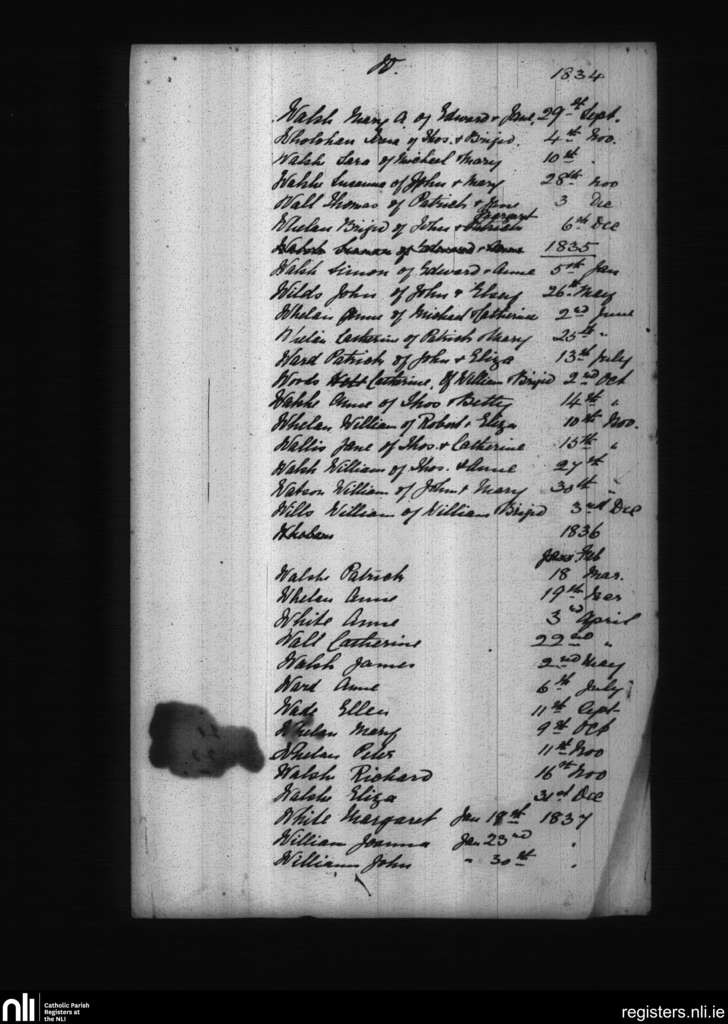 W.
1834
Walsh Mary A of Edward & Jane, 29th Sept.
Wholohan of Thos. & Brigid. 4th Nov.
Walsh Sara of Michael & Mary 10th "
Walsh Susanna of John & Mary 28th Nov
Wall Thomas of Patrick & Jane 3 Dec
Margaret
Whelan Brigid of John & Patrick 6th Dec
Walsh Simon of Edward & Anne 1835
Walsh Simon of Edward & Anne 5th Jan
Wilds John of John & 26th May
Whelan Anne of Michael & Catherine 2nd June
Whelan Catherine of Patrick & Mary 25th "
Ward Patrick of John & Eliza 13th July
Woods Catherine, of William & Brigid 2nd Oct
Walsh Anne of Thos & Betty 14th "
Whelan William of Robert & Eliza 10th Nov.
Wallis Jane of Thos. & Catherine 15th "
Walsh William of Thos. & Anne 27th
Watson William of John & Mary 30th "
Wills William of William & Brigid 3rd Dec
1836
Jan Feb
Walsh Patrick 18 Mar.
Whelan Anne 19th Mar
White Anne 3rd April
Wall Catherine 22nd "
Walsh James 2nd May
Ward Anne 6th July
Wade Ellen 11th Sept
Whelan Mary 9th Oct
Whelan Peter 11th Nov
Walsh Richard 16th Nov
Walsh Eliza 31st Dec
White Margaret Jan 18th 1837
William Joanna Jan 23rd "
William John " 30th "
nli
Catholic Parish
Registers at
the NLI
registers.nli.ie